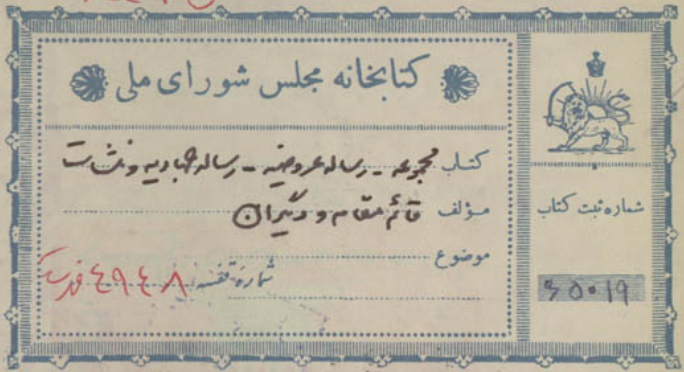 کتابخانه مجلس شورای ملی
کتاب مجموعه - رساله عروضیه - رساله جهادیه و منشآت
مؤلف قائم مقام و دیگران
موضوع
شماره قفسه ۴۹۴۸
شماره ثبت کتاب
۶۵۰۱۹